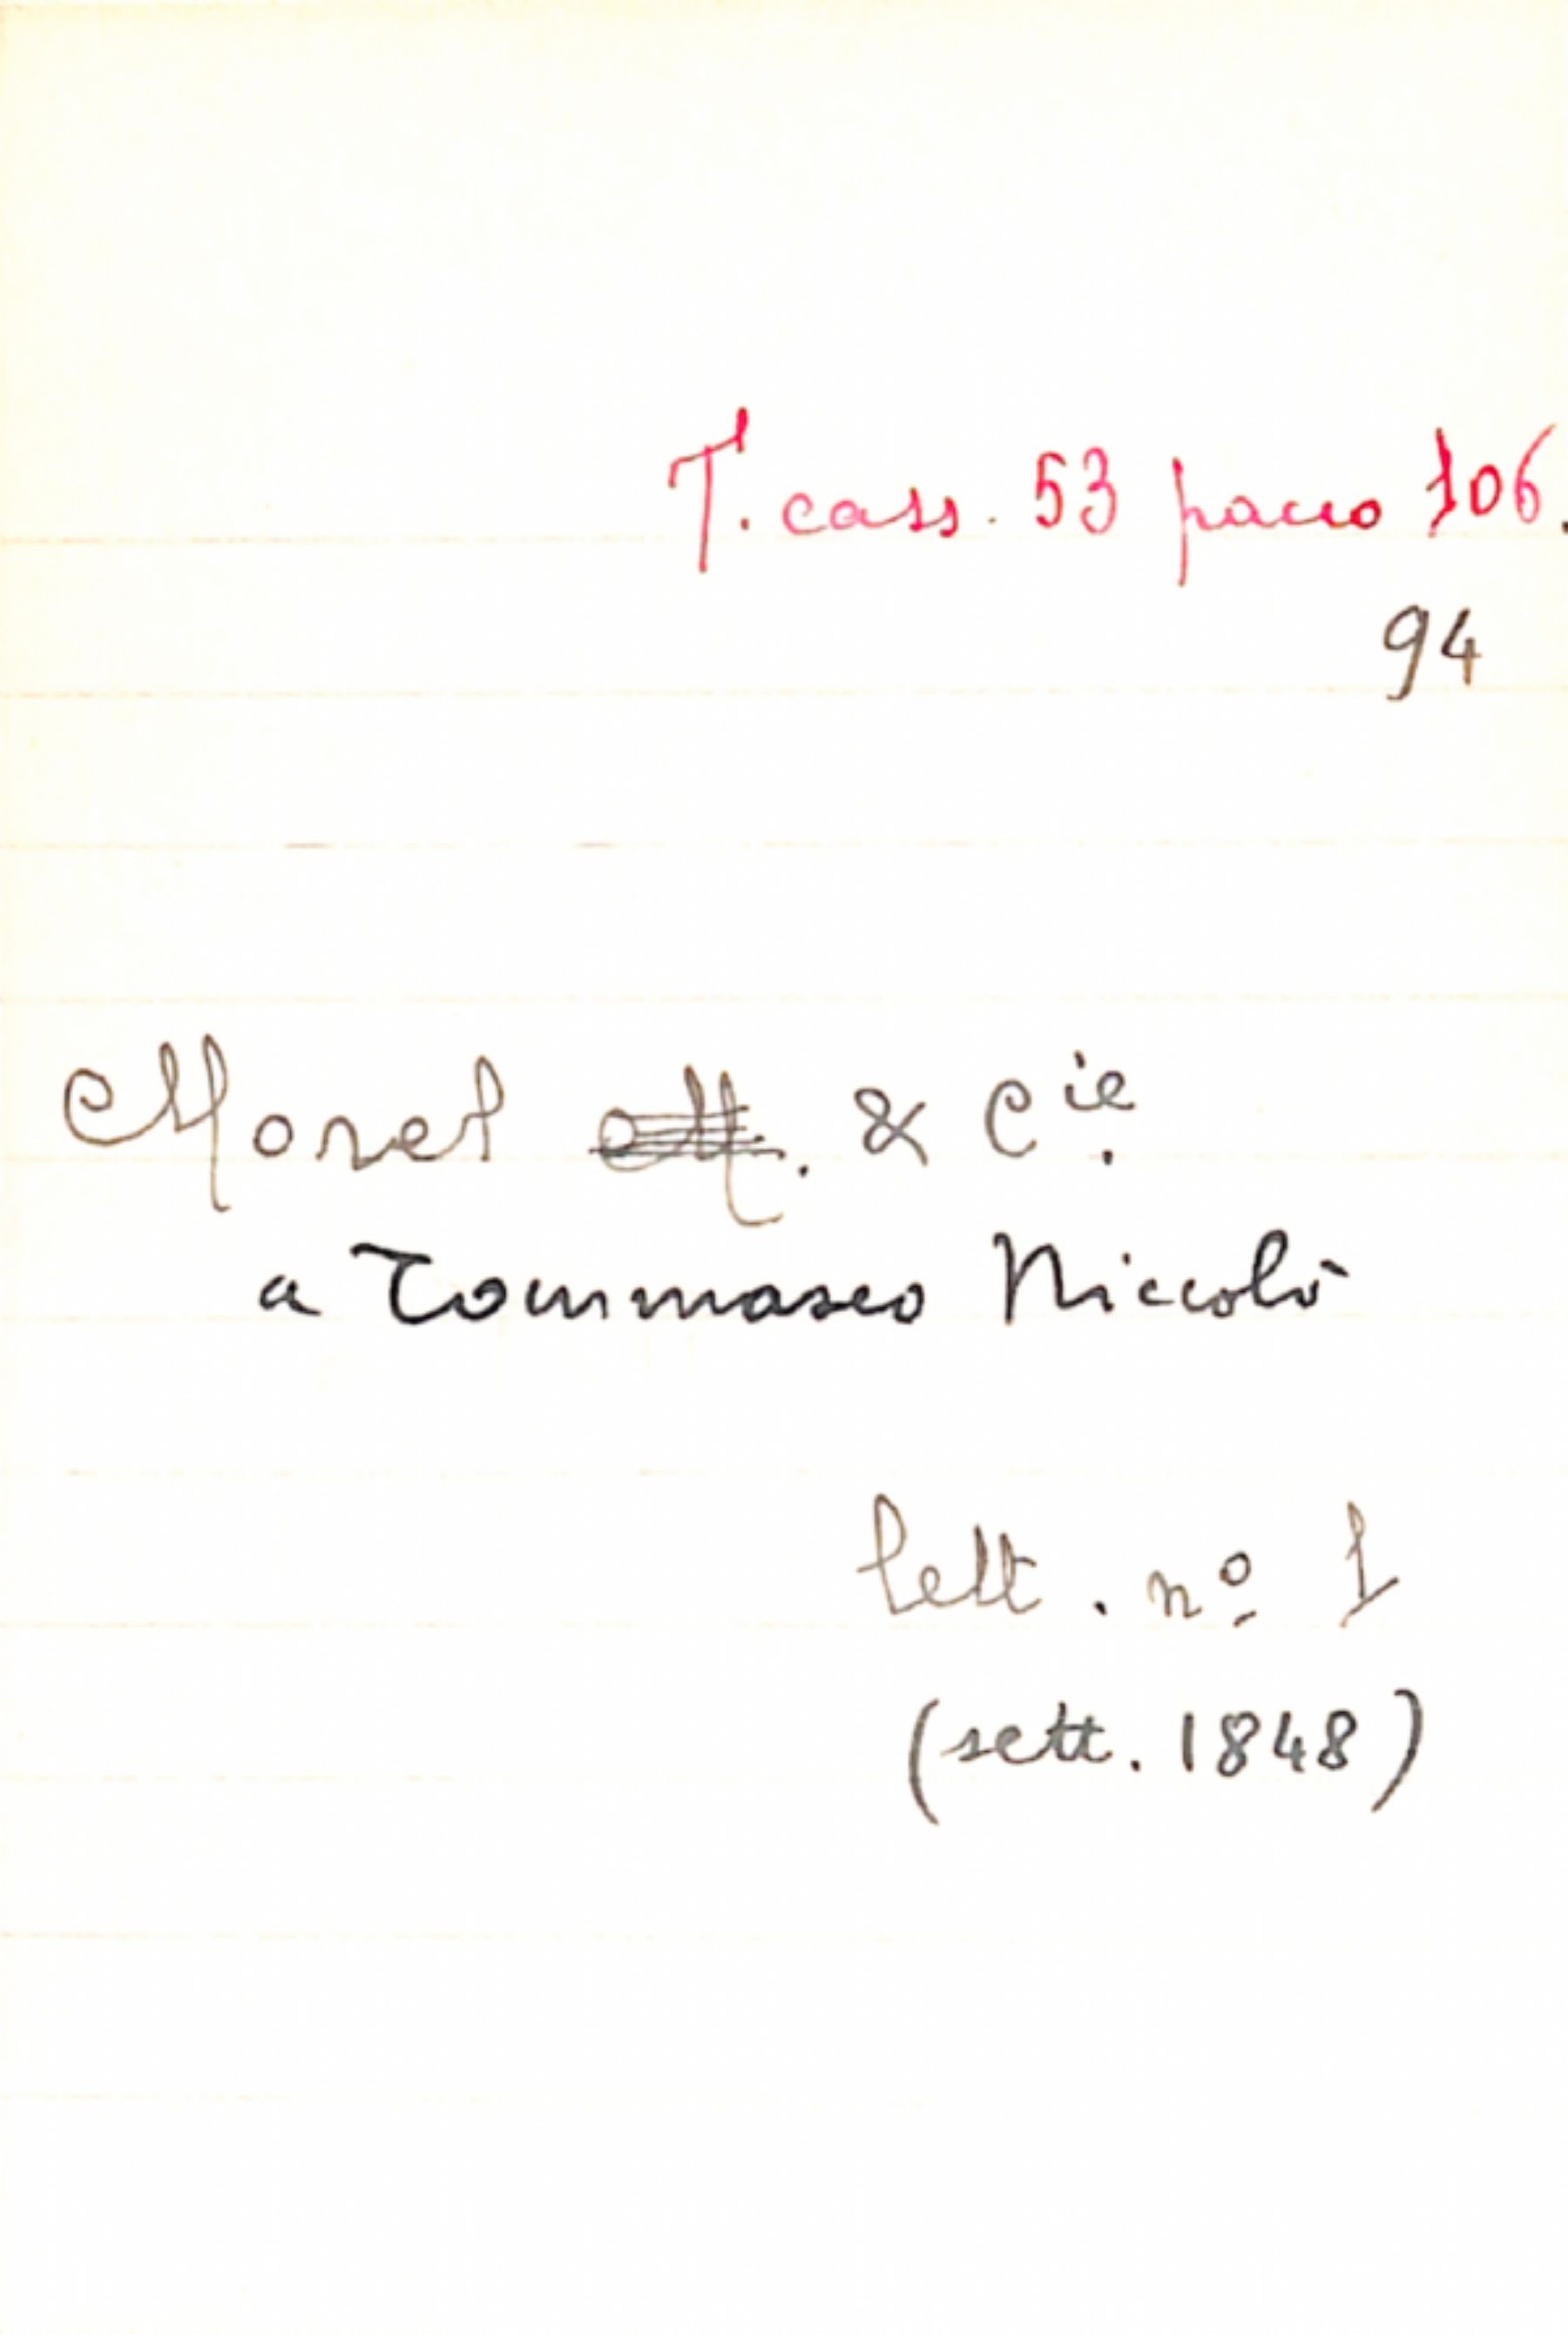 T. cass. 53 pacco 106.
94
Morel & Cie.
a Tommaseo Niccolò
lett. nº 1
(sett. 1848)